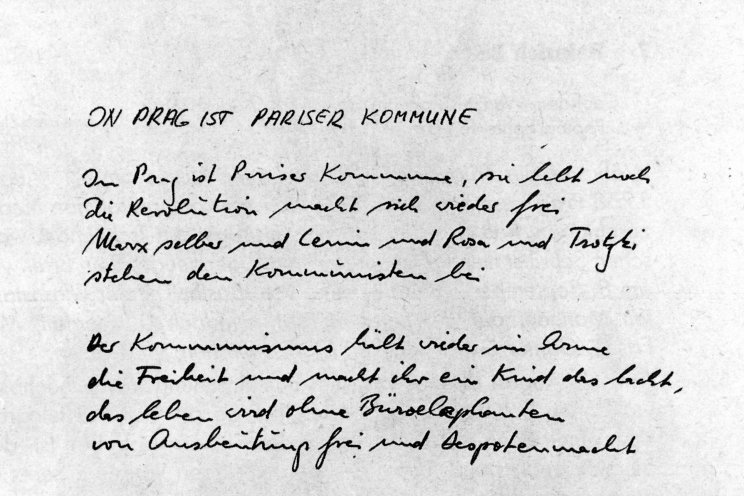 IN PRAG IST PARISER KOMMUNE
In Prag ist Pariser Kommune, sie lebt noch
die Revolution macht sich wieder frei
Marx selber und Lenin und Rosa und Trotzki
stehen den Kommunisten bei
Der Kommunismus hält wieder im Arme
die Freiheit und macht ihr ein Kind das lacht,
das leben wird ohne Büroelephanten
von Ausbeutung frei und Despotenmacht